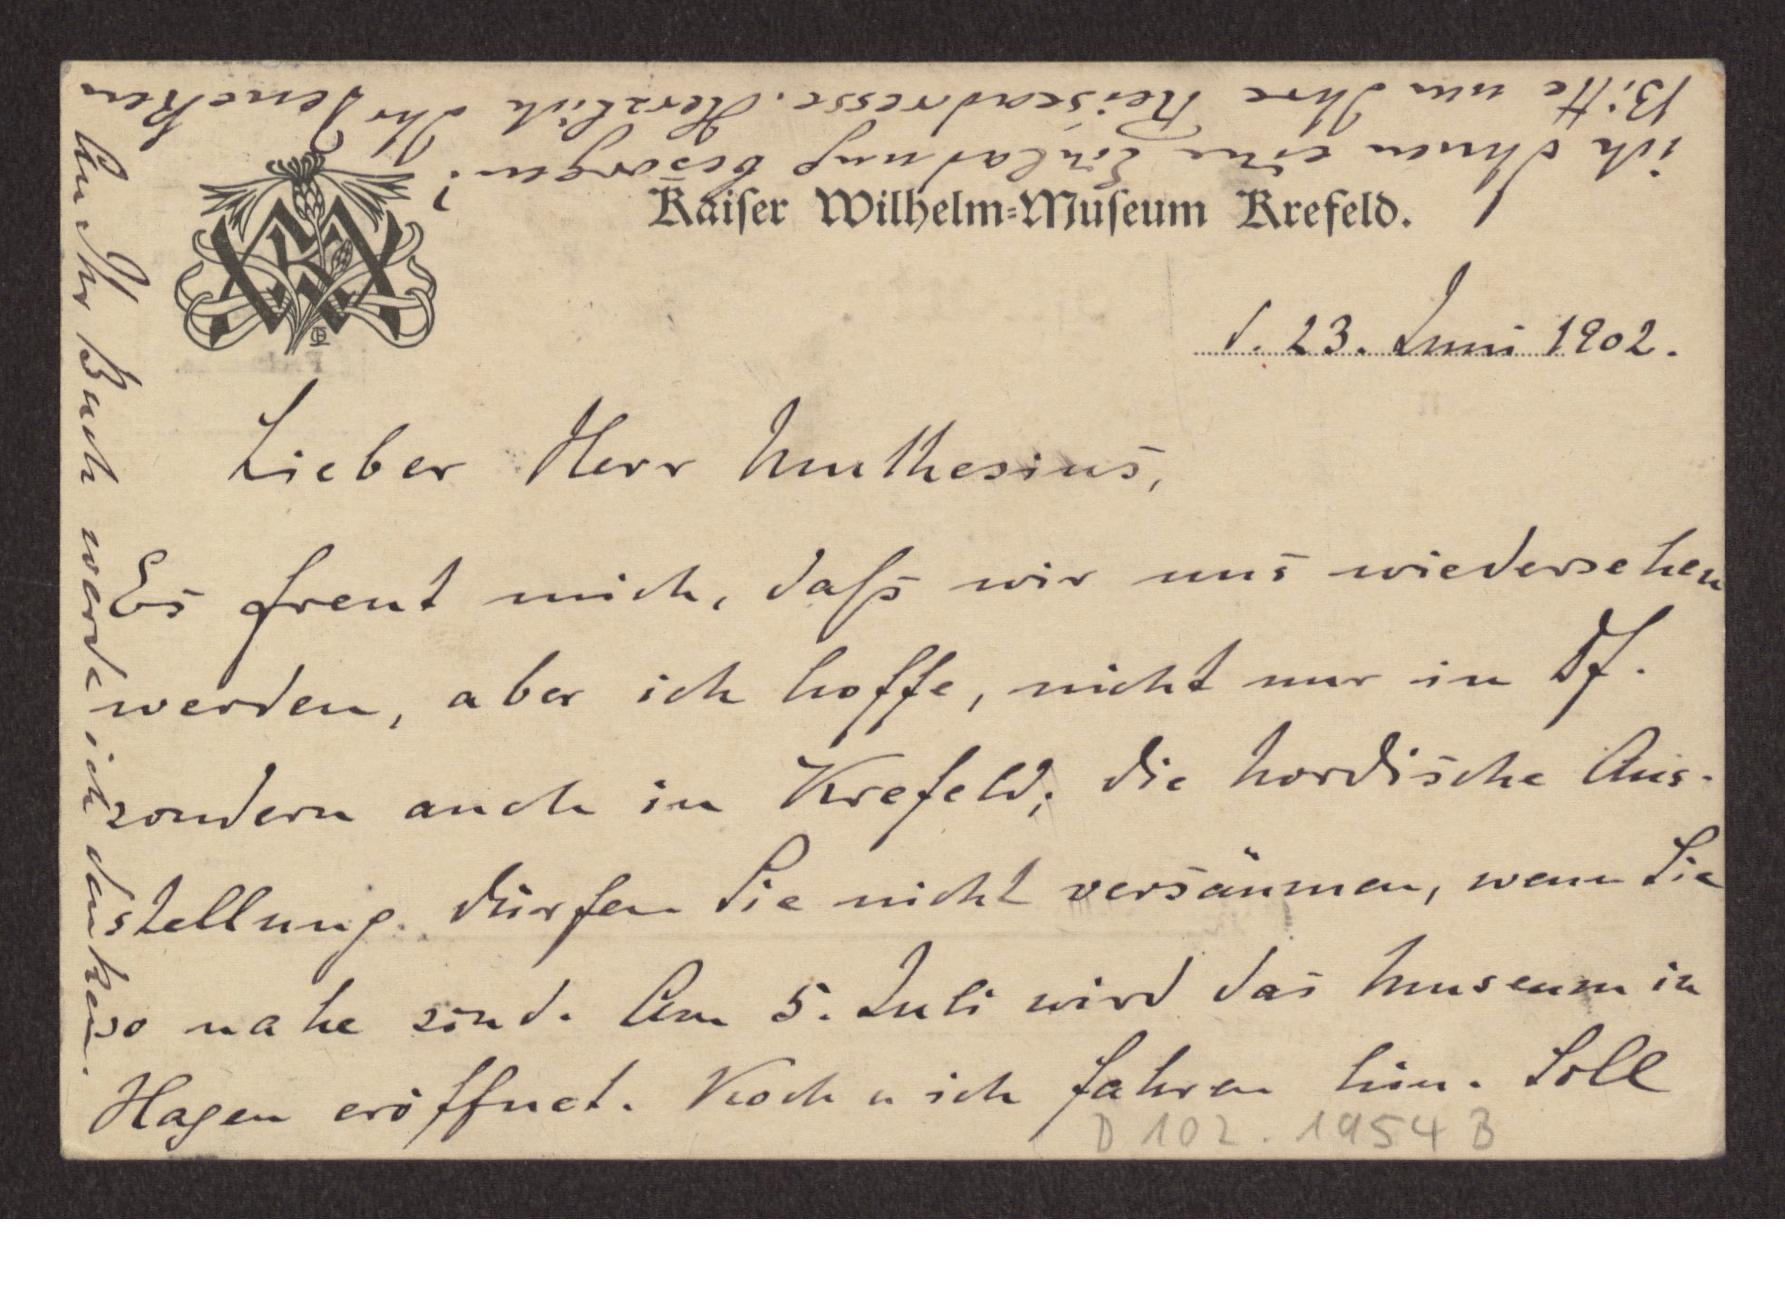 Kaiser Wilhelm=Museum Krefeld.
d. 23. Juni 1902.
Lieber Herr Muthesius,
Es freut mich, daß wir uns wiedersehen
werden, aber ich hoffe, nicht nur in Df.
sondern auch in Krefeld; die Nordische Aus-
stellung dürfen Sie nicht versäumen, wenn Sie
so nahe sind. Am 5. Juli wird das Museum in
Hagen eröffnet. Koch u ich fahren hin. Soll
ich Ihnen eine Einladung besorgen?
Bitte um Ihre Reiseadresse. Herzlich Ihr Deneken
An Ihr Buch werde ich denken.
D 102. 1954 B